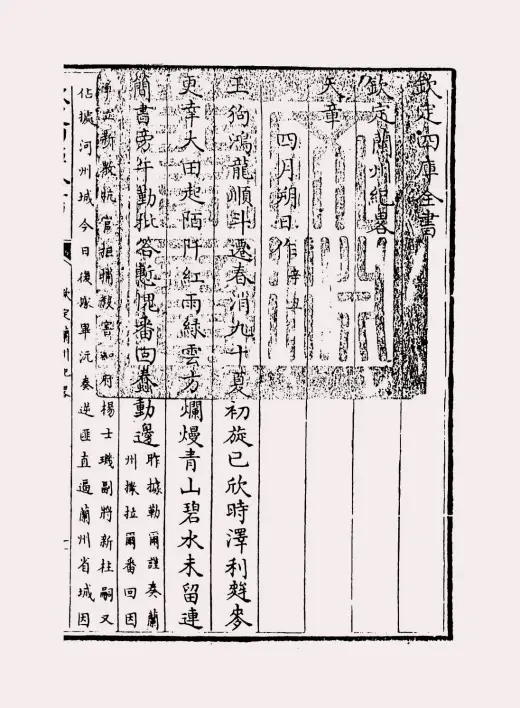 欽定四庫全書
欽定蘭州紀畧
天章
四月朔日作辛丑
玉狗鴻龍順斗遷春消九十夏初旋已欣時澤利麰麥
更幸大田起陌阡紅雨緑雲方爛熳青山碧水未留連
簡書旁午勤批答慙愧番回蠢動邊昨據勒爾謹奏蘭
州撒拉爾番回因
爭立新教抗官拒捕殺害知府楊士璣副將新柱嗣又
佔據河州城今日復據畢沅奏逆匪直逼蘭州省城因
欽定蘭州紀畧